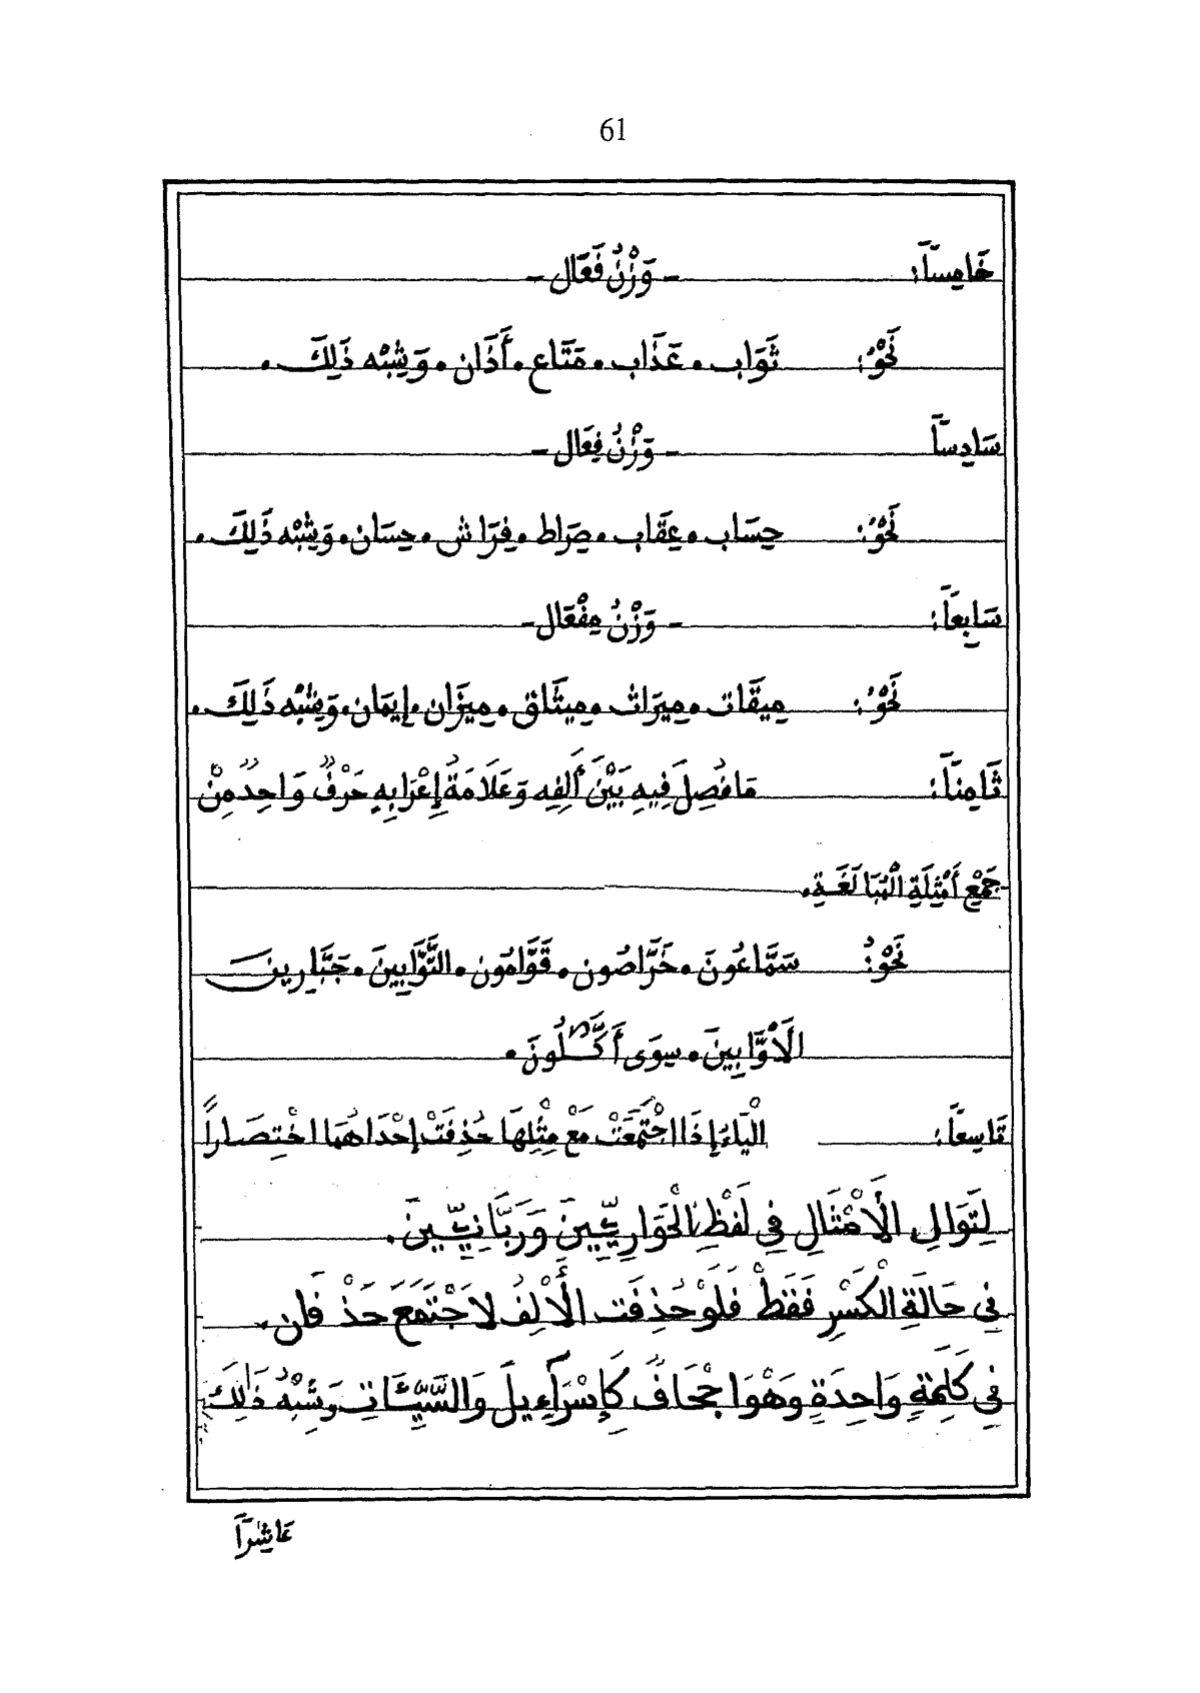 61
خَامِساً: - وَزْنُ فَعَال -
نَحْوُ: ثَوَاب . عَذَاب . مَتَاع . أَذَان . وَشِبْه ذَلِكَ .
سَادِساً - وَزْنُ فِعَال -
نَحْوُ: حِسَاب . عِقَاب . صِرَاط . فِرَاش . حِسَان . وَشِبْه ذَلِكَ .
سَابِعاً: - وَزْنُ مِفْعَال -
نَحْوُ: مِيقَات . مِيرَاث . مِيثَاق . مِيزَان . إِيمَان . وَشِبْه ذَلِكَ .
ثَامِناً: مَا فُصِلَ فِيهِ بَيْنَ أَلِفِه وَعَلَامَةُ إِعْرَابِهِ حَرْفٌ وَاحِدٌ مِنْ
جَمْعِ أَمْثِلَةِ الْمُبَالَغَةِ .
نَحْوُ: سَمَّاعُونَ . خَرَّاصُون . قَوَّامُون . التَّوَّابِينَ . جَبَّارِين
الْأَوَّابِينَ . سِوَى أَكَّـٰلُونَ .
تَاسِعاً: الْيَاءُ إِذَا اجْتَمَعَتْ مَعْ مِثْلِهَا حُذِفَتْ إِحْدَاهُمَا اخْتِصَاراً
لِتَوَالِ الْأَمْثَالِ فِي لَفْظِ الْحَوَارِيِّينَ وَرَبَّانِيِّينَ .
فِي حَالَةِ الْكَسْرِ فَقَطْ فَلَوْ حُذِفَت الْأَلِفُ لَاجْتَمَعَ حَذْفَان .
فِي كَلِمَةٍ وَاحِدَةٍ وَهْوَ اجْحَافٌ كَإِسْرَآءِيلَ وَالسَّيِّـَٔاتِ وَشِبْهُ ذَٰلِكَ
عَاشِراً